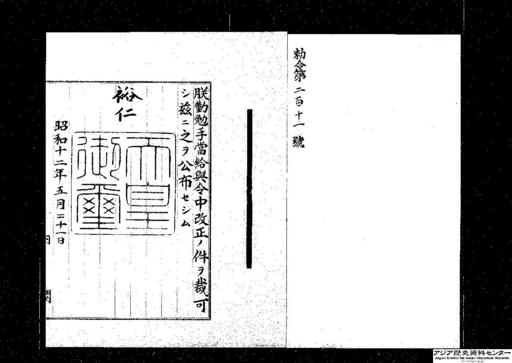 勅令第二百十一號
朕勤勉手當給與令中改正ノ件ヲ裁可
シ茲ニ之ヲ公布セシム
裕仁
天皇
御璽
昭和十二年五月二十一日
アジア歴史資料センター
Japan Center for Asian Historical Records